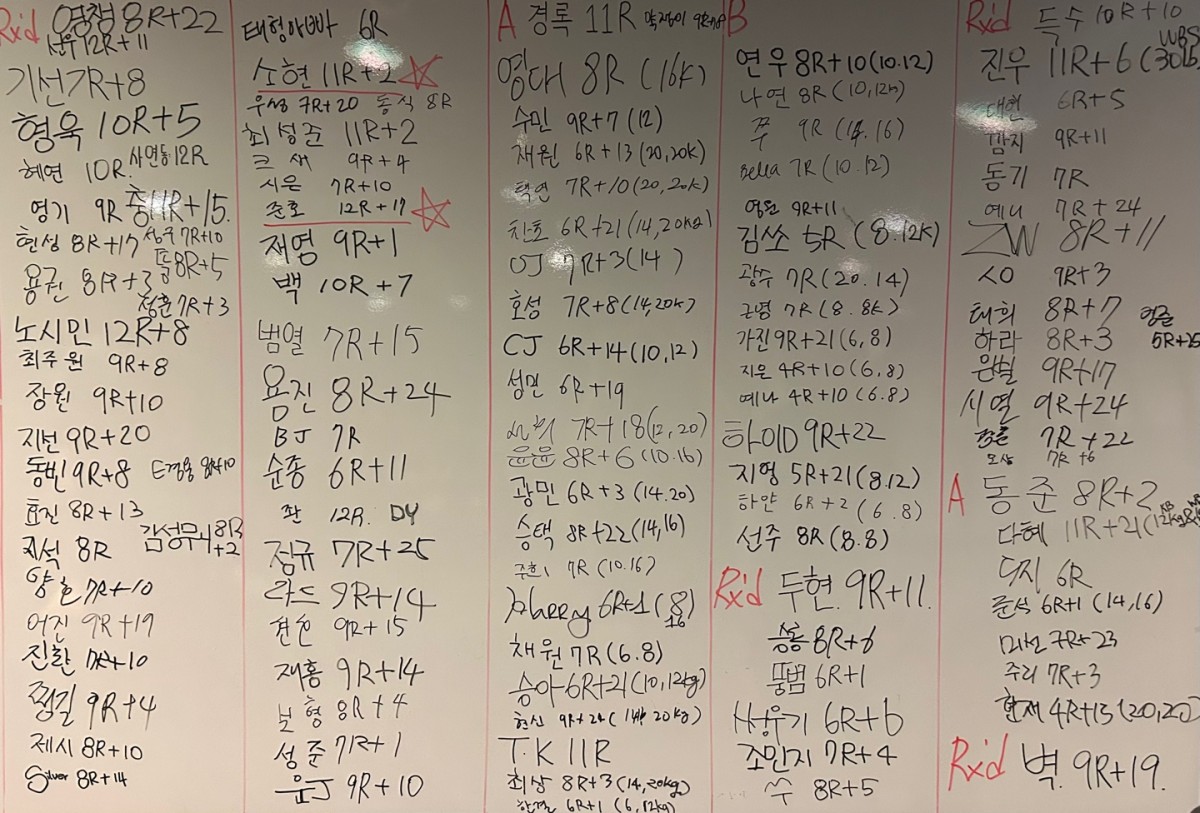 Rx'd 영챙 8R+22
선우 12R+11
기선 7R+8
형욱 10R+5
혜연 10R 사연동 12R
영기 9R 충 11R+15.
현성 8R+17 성국 7R+10
용권 8R+3 똘 8R+5
정훈 7R+3
노시민 12R+8
최주원 9R+8
장원 9R+10
지선 9R+20
동빈 9R+8 E경용 8R+10
효진 8R+13
지석 8R 김성무니 8R+2
양호 7R+10
어진 9R+19
진환 7R+10
찡길 9R+4
제시 8R+10
Silver 8R+14
태형아빠 6R
소현 11R+2
우성 7R+20 동식 8R
최성준 11R+2
크새 9R+4
시은 7R+10
준호 12R+17
재영 9R+1
백 10R+7
범열 7R+15
용진 8R+24
BJ 7R
순종 6R+11
좐 12R. DY
점규 7R+25
라드 9R+14
9R+15
재홍 9R+14
보형 8R+4
성준 7R+1
운J 9R+10
A 경록 11R
영대 8R (16K)
수민 9R+7 (12)
재원 6R+13 (20,20K)
택연 7R+10 (20,20K)
찬호 6R+21 (14,20kg)
OJ 7R+3 (14)
호성 7R+8 (14,20K)
CJ 6R+14 (10,12)
성민 6R+19
7R+18 (12,20)
윤윤 8R+6 (10.16)
광민 6R+3 (14.20)
승택 8R+22 (14,16)
7R (10.16)
6R+1 (8 16
채원 7R (6.8)
승아 6R+21 (10,12kg)
현신 9R+24 (14 20kg)
T.K 11R
최상 8R+3 (14,20kg)
한결 6R+1 (6,12kg)
B
연우 8R+10 (10.12)
나연 8R (10,12k)
쭈 9R (14.16)
Bella 7R (10.12)
영원 9R+11
김쏘 5R (8.12K)
광수 7R (20.14)
근영 7R (8.8K)
가진 9R+21 (6,8)
지은 4R+10 (6,8)
예나 4R+10 (6.8)
하이D 9R+22
지영 5R+21 (8.12)
하얀 6R+2 (6.8)
선주 8R (8.8)
Rx'd 두현. 9R+11.
승룡 8R+6
뚱범 6R+1
H우기 6R+6
조민지 7R+4
쑤 8R+5
Rx'd 득수 10R+10
진우 11R+6 (30lb WBS
대현 6R+5
깜지 9R+11
동기 7R
예니 7R+24
ZW 8R+11
LO 9R+3
태희 8R+7
하라 8R+3 영준 5R+25
원빌 9R+17
시열 9R+24
7R+22
7R+6
A 동준 8R+2
다혜 11R+21
6R
준석 6R+1 (14,16)
미선 7R+23
주리 7R+3
현재 4R+13 (20,20)
Rx'd 벽. 9R+19.